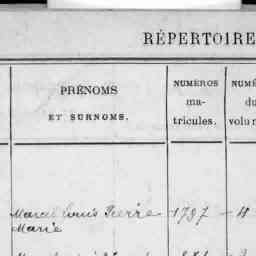 RÉPERTOIRE
PRÉNOMS
ET SURNOMS.
NUMÉROS
ma-
tricules.
NUMÉ
du
volum
Marcel Louis Pierre 1797
Marie